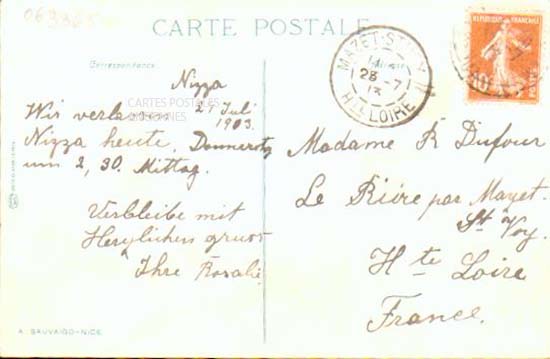 063865
CARTE POSTALE
RÉPUBLIQUE FRANÇAISE
POSTES
MAZET-ST-VOY
28 -7
13
Hte LOIRE
Correspondance
Nizza
CARTES POSTALES
ANCIENNES
27 Juli
1903.
Wir verlassen
Nizza heute, Donnerstag
um 2, 30. Mittag.
Verbleibe mit
Herzlichen gruss
Ihre Rosalie
Madame R Dufour
Le Riére par Mazet-
St Voy.
Hte Loire
France.
A. SAUVAIGO-NICE